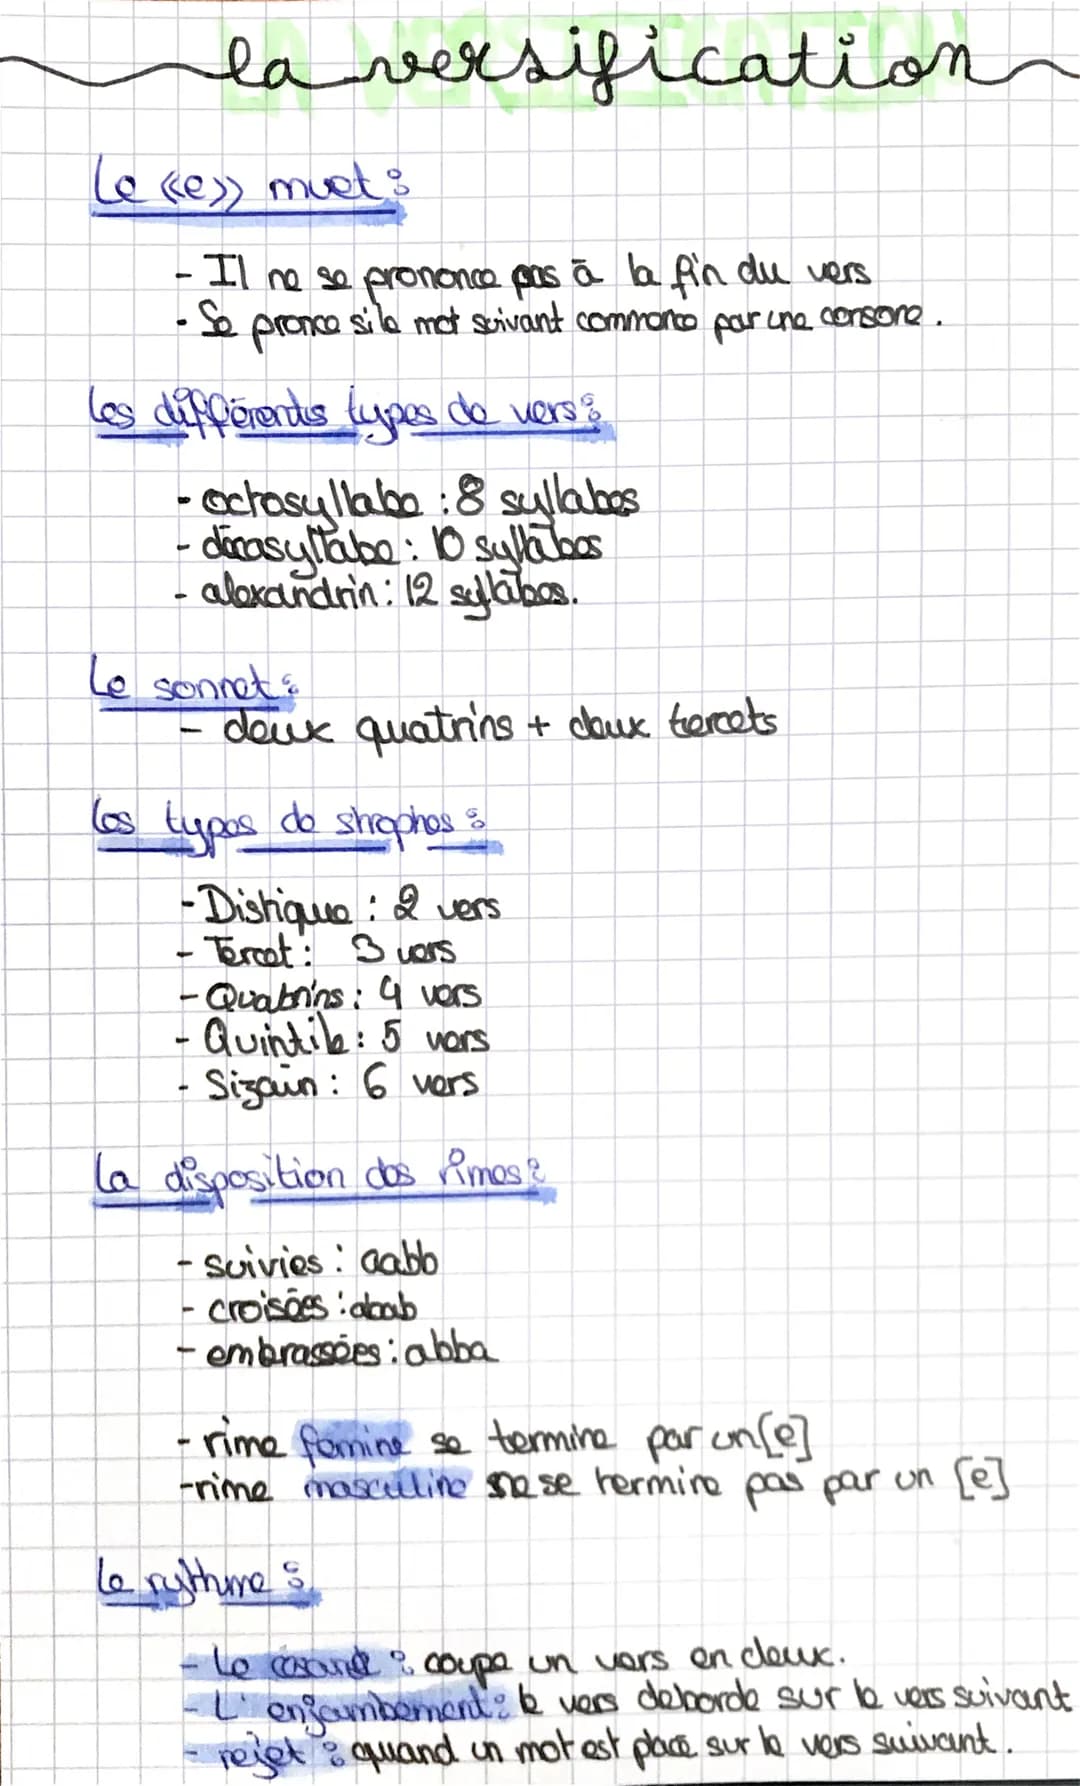 la versification
Le «e» muet :
- Il ne se prononce pas à la fin du vers
- Se pronce si le mot suivant commence par une consone.
Les différents types de vers :
- octosyllabe : 8 syllabes
- décasyllabe : 10 syllabes
- alexandrin : 12 syllabes.
Le sonnet :
- deux quatrins + deux tercets
Les types de strophes :
- Distique : 2 vers
- Tercet : 3 vers
- Quatrins : 4 vers
- Quintile : 5 vers
- Sizain : 6 vers
La disposition des rimes :
- suivies : aabb
- croisées : abab
- embrassées : abba
- rime femine se termine par un [e]
- rime masculine ne se termine pas par un [e]
Le rythme :
- Le : coupe un vers en deux.
- L'enjambement : le vers deborde sur le vers suivant
- rejet : quand un mot est place sur le vers suivant.